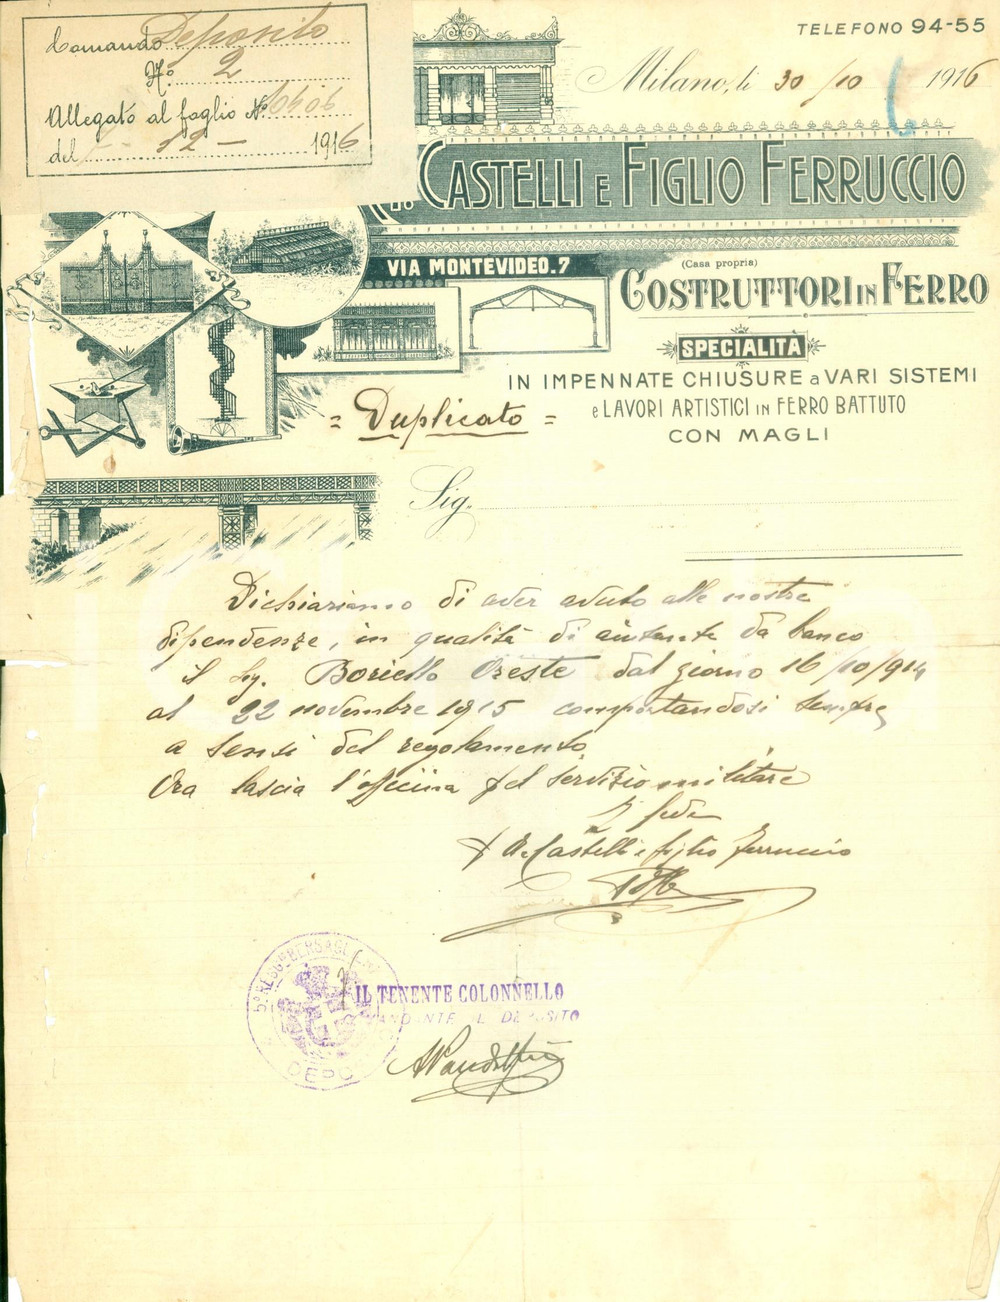 Comando Deposito
No. 2
Allegato al foglio No
del 12 - 1916
TELEFONO 94-55
Milano, li 30/10 1916
CASTELLI E FIGLIO FERRUCCIO
VIA MONTEVIDEO. 7
(Casa propria)
COSTRUTTORI IN FERRO
SPECIALITÀ
IN IMPENNATE CHIUSURE a VARI SISTEMI
e LAVORI ARTISTICI IN FERRO BATTUTO
CON MAGLI
= Duplicato =
Sig.
Dichiariamo di aver avuto alle nostre
dipendenze, in qualità di aiutante da banco
il Sig. Boriello Oreste dal giorno 16/10/914
al 22 novembre 1915 comportandosi sempre
a sensi del regolamento.
Ora lascia l'officina pel servizio militare
In fede
Castelli e figlio Ferruccio
IL TENENTE COLONNELLO
DEPOSITO
BERSAGLIERI
DEPO